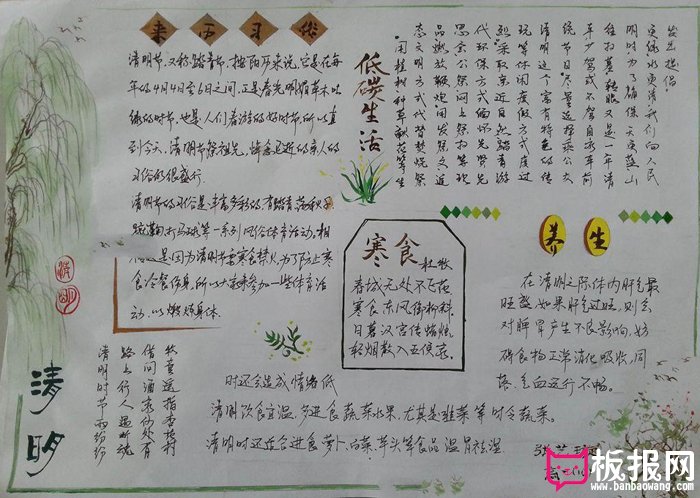 来历习俗
清明节,又称踏青节,按阳历来说,它是在每
年的4月4日至6日之间,正是春光明媚草木吐
绿的时节,也是人们春游的好时节,所以直
到今天,清明节祭祖先,悼念已逝的亲人的
习俗仍很盛行。
清明节的习俗是丰富多彩的,有踏青荡秋千
蹴鞠打马球等一系列风俗体育活动。相
传这是因为清明节要寒食禁火,为了防止寒
食冷餐伤身,所以大家参加一些体育活
动,以锻炼身体。
低碳生活
发出倡
更绿水更清我们向人民
明时,为了确保天更蓝山
往扫墓,转眼又是一年清
车少驾或不驾自家车前
统节日,尽量选择乘公交
清明这个富有特色的传
玩等休闲度假方式度过
熙,采取亲近自然踏青游
代环保方式缅怀先贤先
思念公祭网上祭扫等现
品燃放鞭炮用发祭文追
态文明方式代替焚烧祭
用植树种草献花等生
寒食 杜牧
春城无处不飞花
寒食东风御柳斜
日暮汉宫传蜡烛
轻烟散入五侯家。
养生
在清明之际体内肝气最
旺盛,如果肝气过旺,则会
对脾胃产生不良影响,妨
碍食物正常消化吸收,同
气血运行不畅。
时还会造成情绪低
清明饮食宜温,多进食蔬菜水果,尤其是韭菜等时令蔬菜。
清明时还适合进食萝卜、白菜、芋头等食品,温胃祛湿
清明
清明
清明时节雨纷纷
路上行人欲断魂
借问酒家何处有
牧童遥指杏花村
板报网
www.banbaowang.com